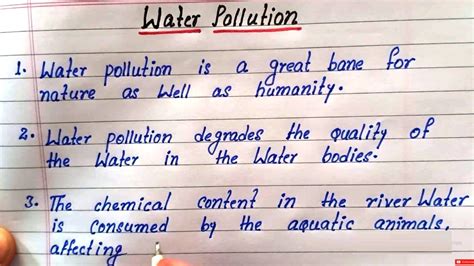 Water Pollution
1. Water pollution is a great bane for
nature as well as humanity.
2. Water pollution degrades the quality of
the Water in the Water bodies.
3. The chemical content in the river Water
is consumed by the aquatic animals,
affecting